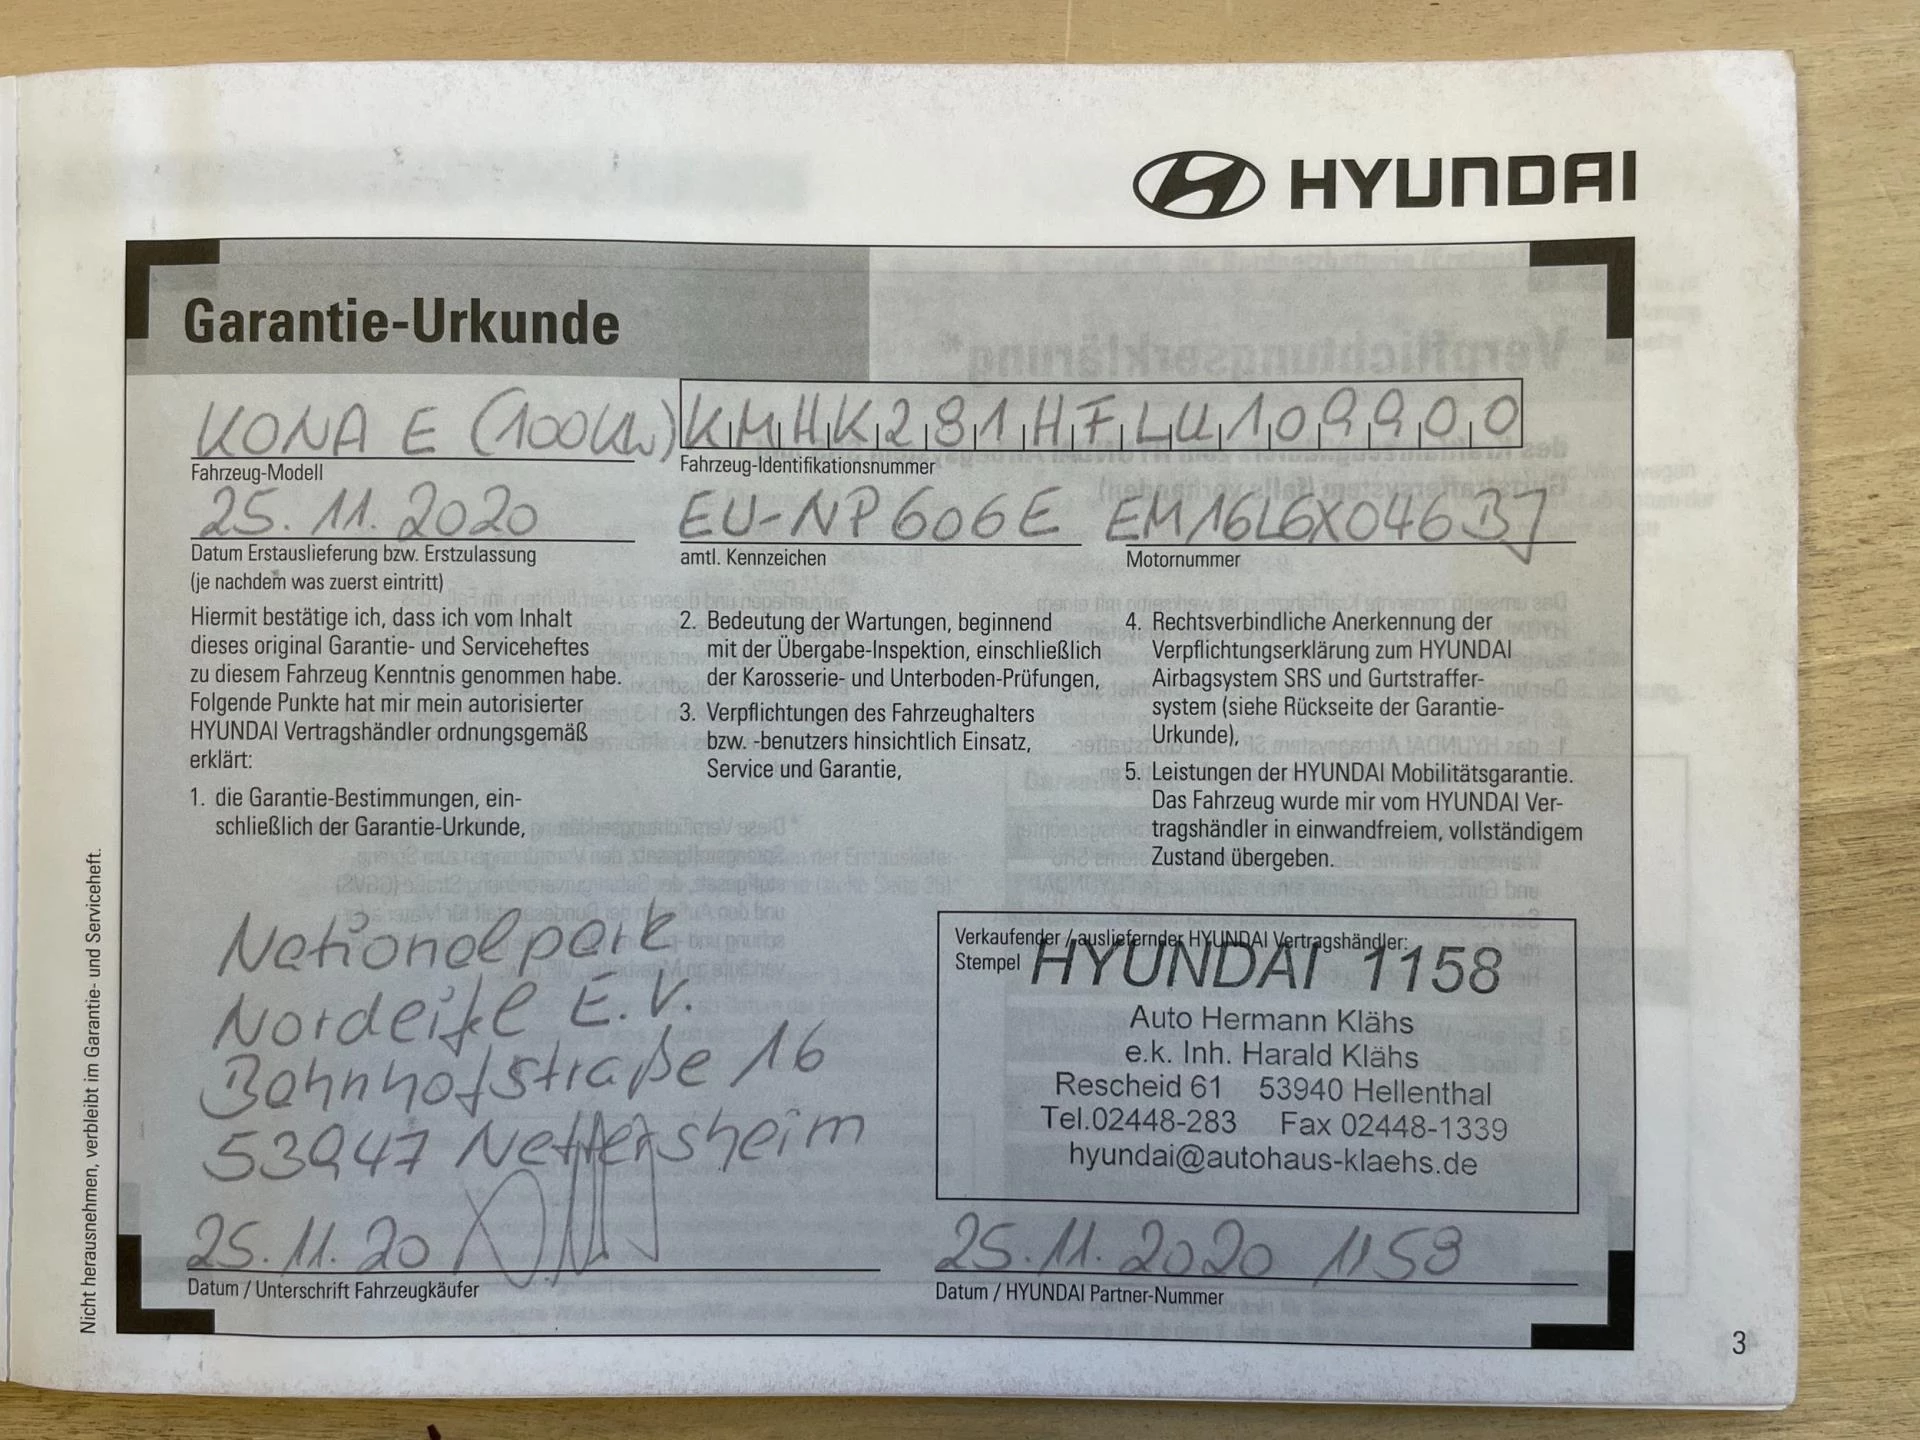 HYUNDAI
Garantie-Urkunde
KONA E (100kW)
KMHK281HFLU109900
Fahrzeug-Modell
Fahrzeug-Identifikationsnummer
25.11.2020
EU-NP606E
EM16L6X046BJ
Datum Erstauslieferung bzw. Erstzulassung
(je nachdem was zuerst eintritt)
amtl. Kennzeichen
Motornummer
Hiermit bestätige ich, dass ich vom Inhalt
dieses original Garantie- und Serviceheftes
zu diesem Fahrzeug Kenntnis genommen habe.
Folgende Punkte hat mir mein autorisierter
HYUNDAI Vertragshändler ordnungsgemäß
erklärt:
1. die Garantie-Bestimmungen, ein-
schließlich der Garantie-Urkunde,
2. Bedeutung der Wartungen, beginnend
mit der Übergabe-Inspektion, einschließlich
der Karosserie- und Unterboden-Prüfungen,
3. Verpflichtungen des Fahrzeughalters
bzw. -benutzers hinsichtlich Einsatz,
Service und Garantie,
4. Rechtsverbindliche Anerkennung der
Verpflichtungserklärung zum HYUNDAI
Airbagsystem SRS und Gurtstraffer-
system (siehe Rückseite der Garantie-
Urkunde),
5. Leistungen der HYUNDAI Mobilitätsgarantie.
Das Fahrzeug wurde mir vom HYUNDAI Ver-
tragshändler in einwandfreiem, vollständigem
Zustand übergeben.
Nationalpark
Nordeifel E.V.
Bahnhofstraße 16
53947 Nettersheim
25.11.20
Datum / Unterschrift Fahrzeugkäufer
Verkaufender / ausliefernder HYUNDAI Vertragshändler:
Stempel
HYUNDAI 1158
Auto Hermann Klähs
e.k. Inh. Harald Klähs
Rescheid 61 53940 Hellenthal
Tel.02448-283 Fax 02448-1339
hyundai@autohaus-klaehs.de
25.11.2020 1158
Datum / HYUNDAI Partner-Nummer
Nicht herausnehmen, verbleibt im Garantie- und Serviceheft.
3